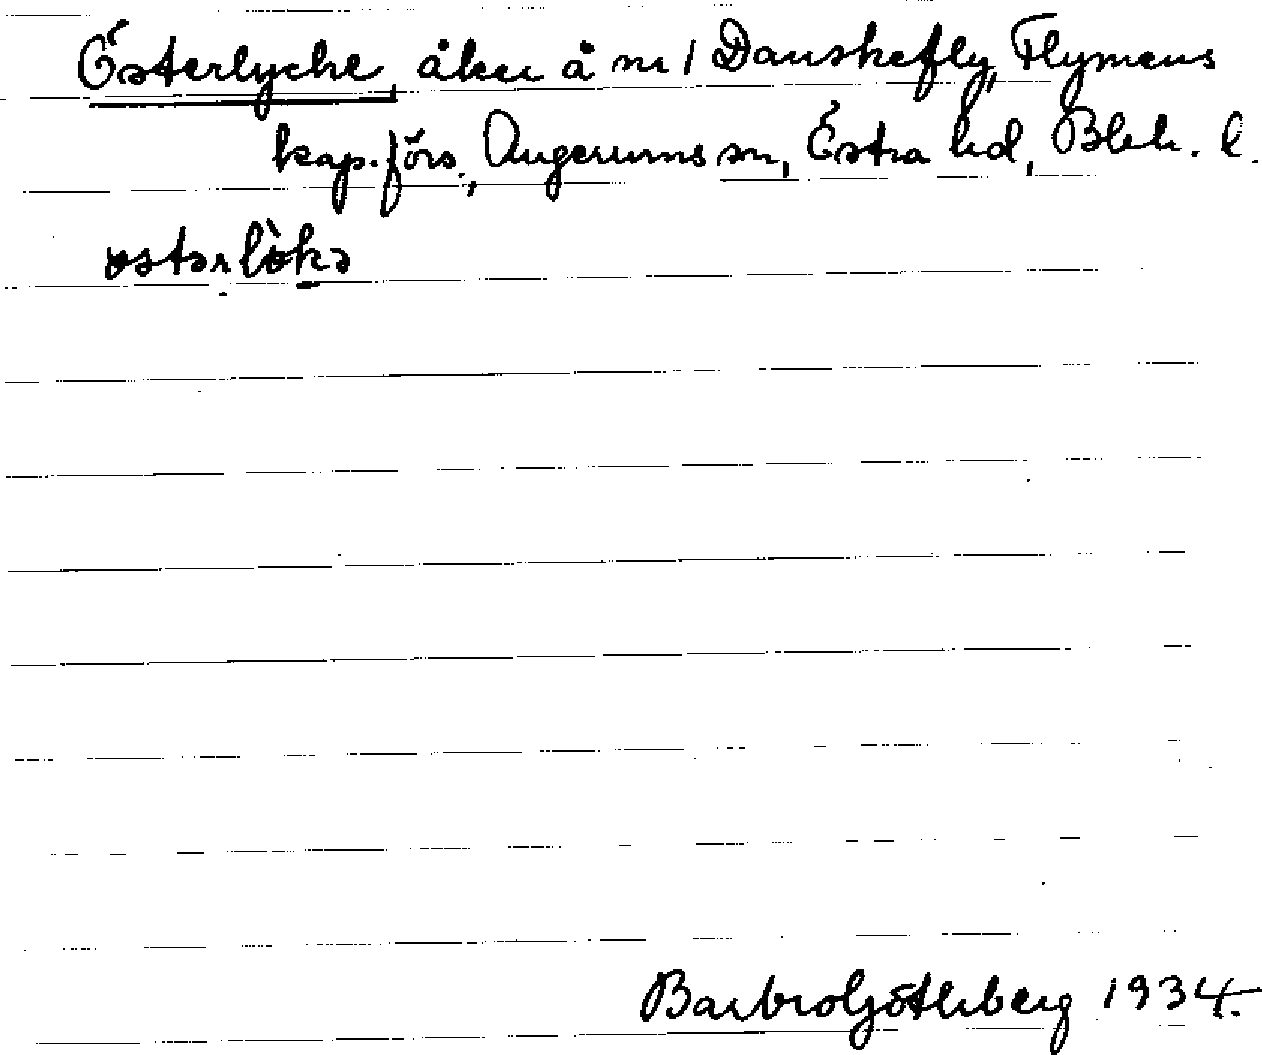 Österlycke, åker å nr 1 Danskefly, Flymens
kap.förs., Augerums sn, Östra hd, Blek. l.
østərlö̀kə
Barbro Götherberg 1934.